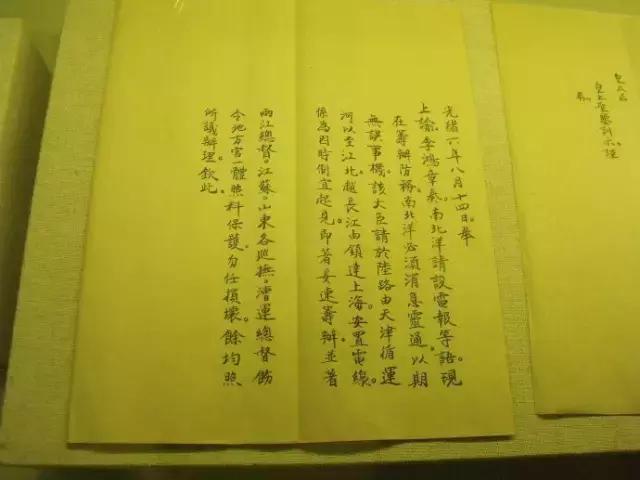 皇太后
皇上聖鑒訓示。謹
奏。
光緒六年八月十四日。奉
上諭。李鴻章奏。南北洋請設電報等語。現
在籌辦防務。南北洋必須消息靈通。以期
無誤事機。該大臣請於陸路由天津循運
河以至江北。越長江由鎮達上海。安置電線。
係為因時制宜起見。即著妥速籌辦。並著
兩江總督。江蘇。山東各巡撫。漕運總督飭
令地方官一體照料保護。勿任損壞。餘均照
所議辦理。欽此。